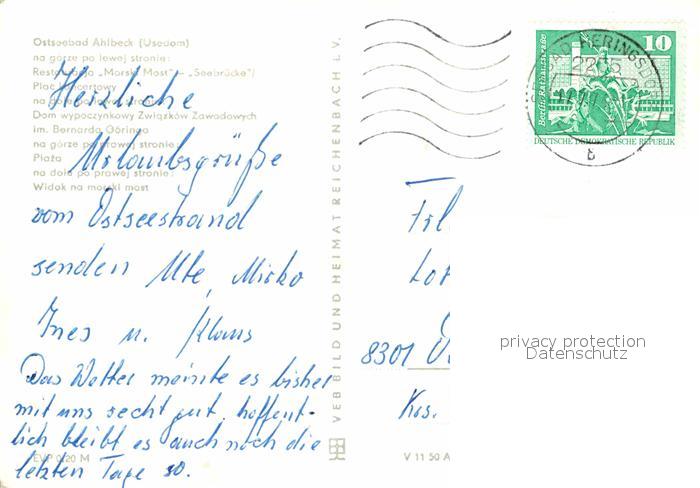 Ostseebad Ahlbeck (Usedom)
na górze po lewej stronie:
Restauracja „Morski Most" – „Seebrücke"/
Plac koncertowy
na dole po lewej stronie:
Dom wypoczynkowy Związków Zawodowych
im. Bernarda Göringa
na górze po prawej stronie:
Plaża
na dole po prawej stronie:
Widok na morski most
Herzliche
Urlaubsgrüße
vom Ostseestrand
senden Ute, Mirko
Ines u. Klaus
Das Wetter meinte es bisher
mit uns recht gut. hoffent-
lich bleibt es auch noch die
letzten Tage so.
EVP 0,20 M
VEB BILD UND HEIMAT REICHENBACH i. V.
V 11 50 A
Berlin, Rathausstraße
10
DEUTSCHE DEMOKRATISCHE REPUBLIK
BAD HERINGSDORF
2255
b
8301
Kos.
privacy protection
Datenschutz